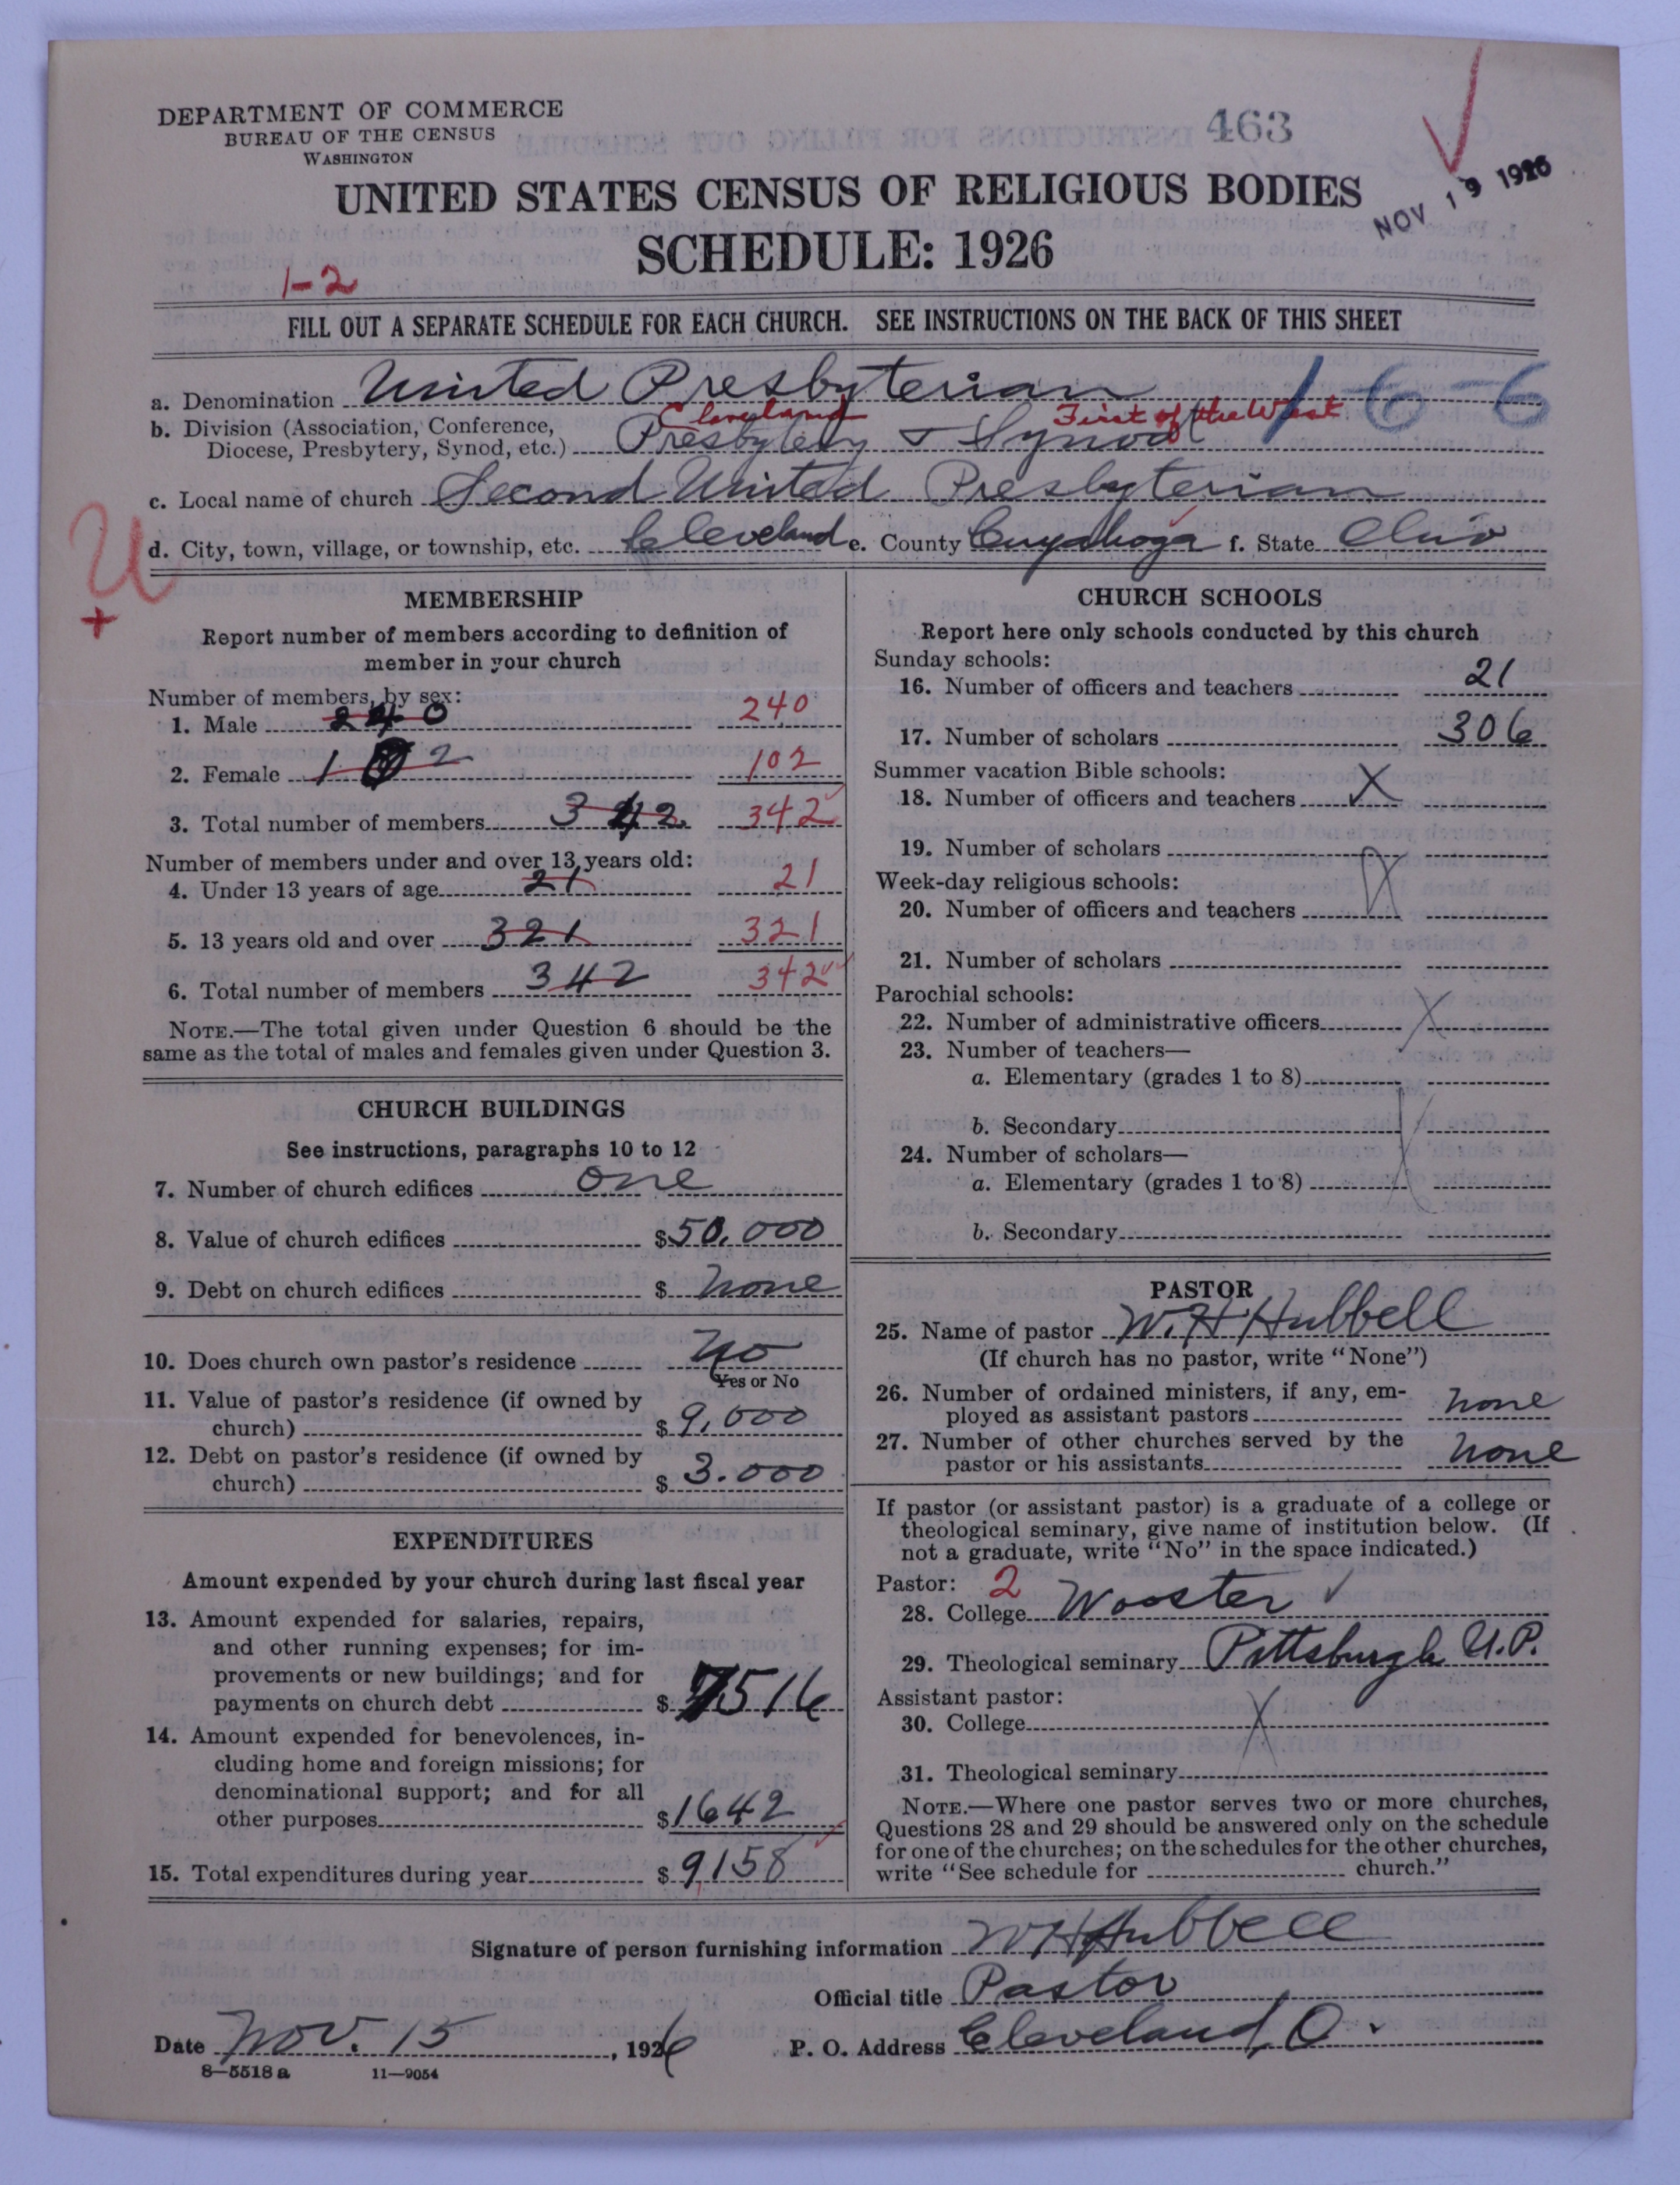 DEPARTMENT OF COMMERCE
BUREAU OF THE CENSUS
WASHINGTON
463
NOV 19 1926
UNITED STATES CENSUS OF RELIGIOUS BODIES
SCHEDULE: 1926
1-2
FILL OUT A SEPARATE SCHEDULE FOR EACH CHURCH. SEE INSTRUCTIONS ON THE BACK OF THIS SHEET
a. Denomination United Presbyterian
1-6-6
Cleveland First of the West
b. Division (Association, Conference,
Diocese, Presbytery, Synod, etc.) Presbytery & Synod
c. Local name of church Second United Presbyterian
d. City, town, village, or township, etc. Cleveland e. County Cuyahoga f. State Ohio
U
+
MEMBERSHIP
Report number of members according to definition of
member in your church
Number of members, by sex:
1. Male 240 240
2. Female 102 102
3. Total number of members 342 342
Number of members under and over 13 years old:
4. Under 13 years of age 21 21
5. 13 years old and over 321 321
6. Total number of members 342 342
NOTE.—The total given under Question 6 should be the
same as the total of males and females given under Question 3.
CHURCH BUILDINGS
See instructions, paragraphs 10 to 12
7. Number of church edifices one
8. Value of church edifices $50,000
9. Debt on church edifices $ none
10. Does church own pastor's residence No
Yes or No
11. Value of pastor's residence (if owned by
church) $ 9,000
12. Debt on pastor's residence (if owned by
church) $ 3.000
EXPENDITURES
Amount expended by your church during last fiscal year
13. Amount expended for salaries, repairs,
and other running expenses; for im-
provements or new buildings; and for
payments on church debt $ 7516
14. Amount expended for benevolences, in-
cluding home and foreign missions; for
denominational support; and for all
other purposes $1642
15. Total expenditures during year $ 9,158
CHURCH SCHOOLS
Report here only schools conducted by this church
Sunday schools:
16. Number of officers and teachers 21
17. Number of scholars 306
Summer vacation Bible schools:
18. Number of officers and teachers X
19. Number of scholars
Week-day religious schools:
20. Number of officers and teachers
21. Number of scholars
Parochial schools:
22. Number of administrative officers X
23. Number of teachers—
a. Elementary (grades 1 to 8)
b. Secondary
24. Number of scholars—
a. Elementary (grades 1 to 8)
b. Secondary
PASTOR
25. Name of pastor W. H Hubbell
(If church has no pastor, write "None")
26. Number of ordained ministers, if any, em-
ployed as assistant pastors none
27. Number of other churches served by the
pastor or his assistants none
If pastor (or assistant pastor) is a graduate of a college or
theological seminary, give name of institution below. (If
not a graduate, write "No" in the space indicated.)
Pastor: 2
28. College Wooster
29. Theological seminary Pittsburgh U.P.
Assistant pastor:
30. College X
31. Theological seminary
NOTE.—Where one pastor serves two or more churches,
Questions 28 and 29 should be answered only on the schedule
for one of the churches; on the schedules for the other churches,
write "See schedule for church."
Signature of person furnishing information W H Hubbell
Official title Pastor
Date Nov. 15, 1926 P. O. Address Cleveland, O.
8—5518 a 11—9054